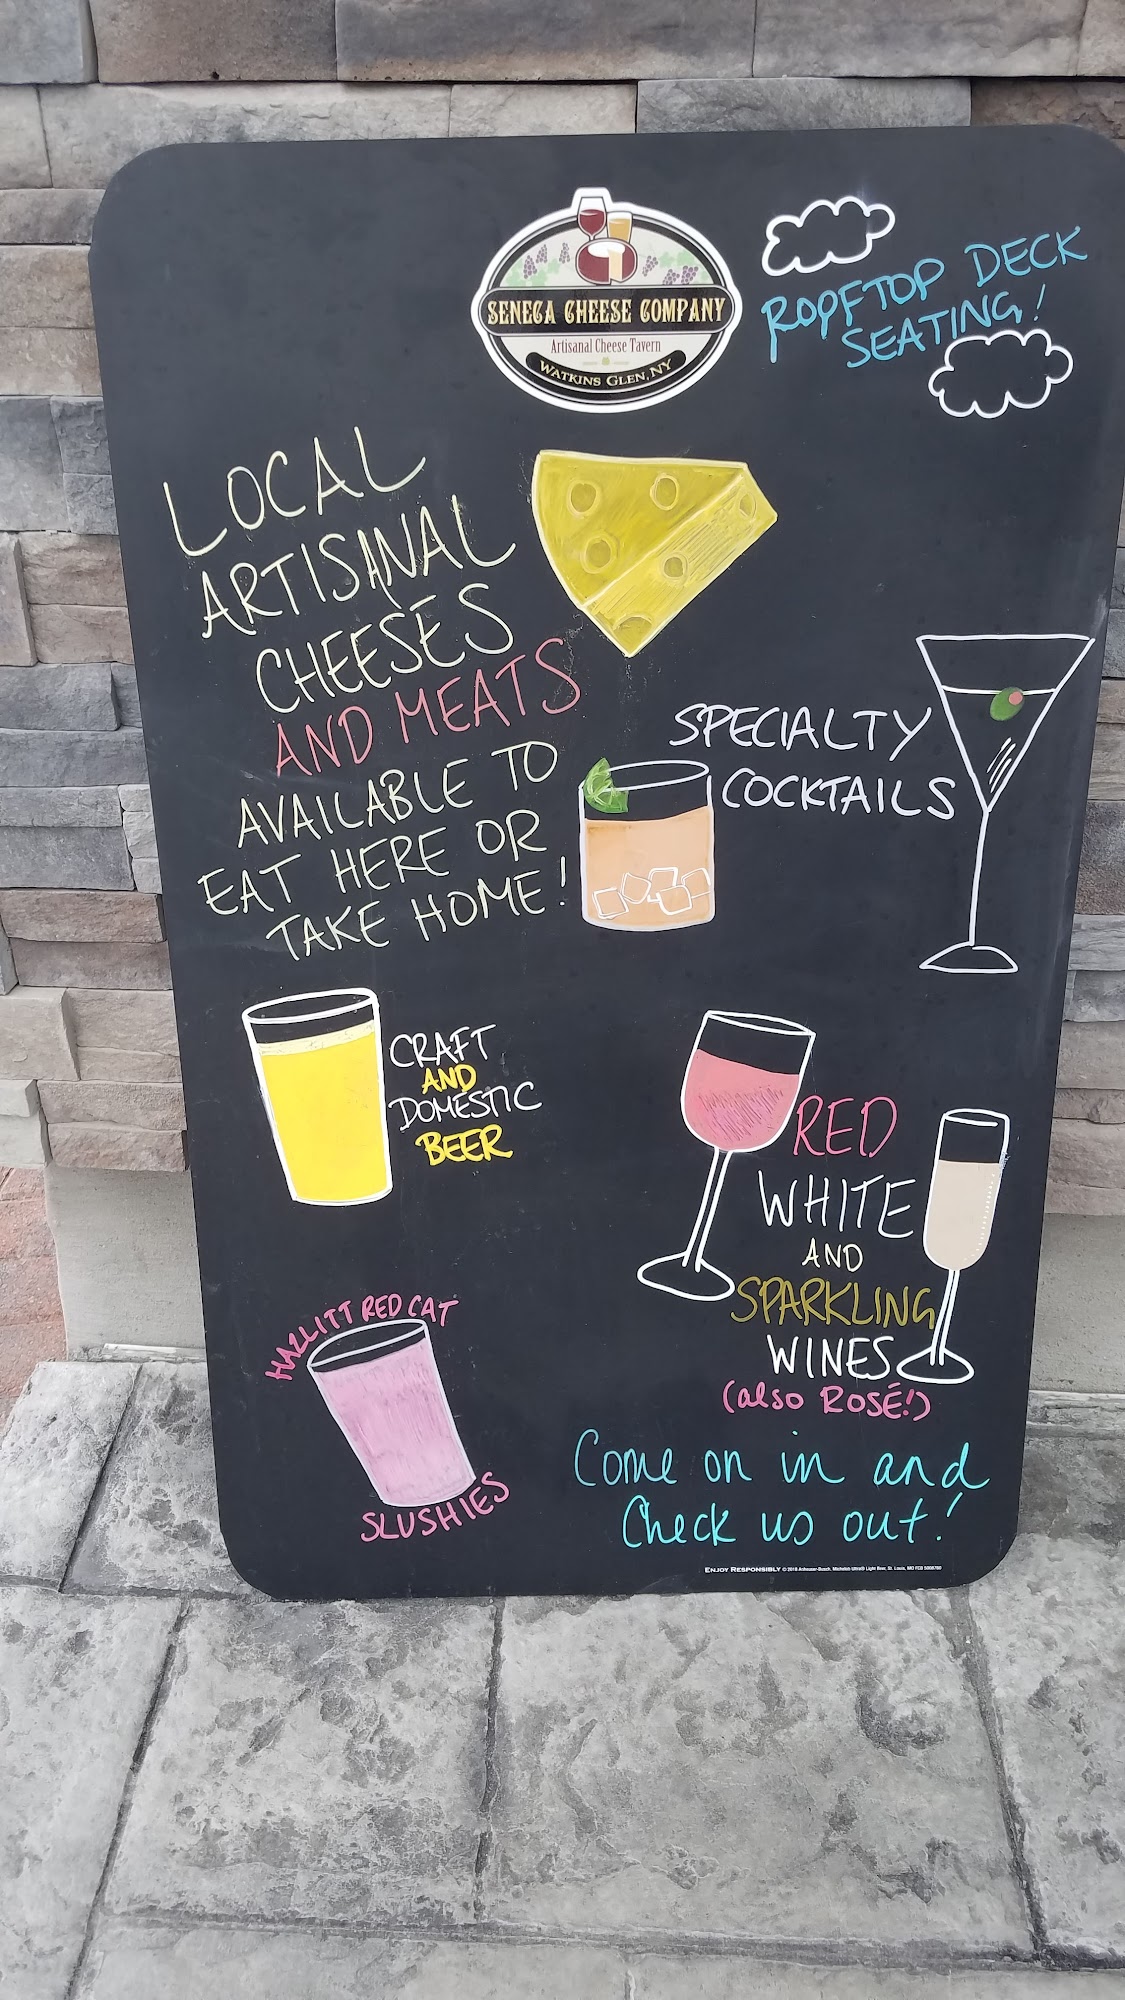 SENECA CHEESE COMPANY
Artisanal Cheese Tavern
WATKINS GLEN, NY
ROOFTOP DECK
SEATING!
LOCAL
ARTISANAL
CHEESES
AND MEATS
AVAILABLE TO
EAT HERE OR
TAKE HOME!
SPECIALTY
COCKTAILS
CRAFT
AND
DOMESTIC
BEER
RED
WHITE
AND
SPARKLING
WINES
(also ROSÉ!)
HAZLITT RED CAT
SLUSHIES
Come on in and
Check us out!
ENJOY RESPONSIBLY © 2018 Anheuser-Busch, Michelob Ultra® Light Beer, St. Louis, MO